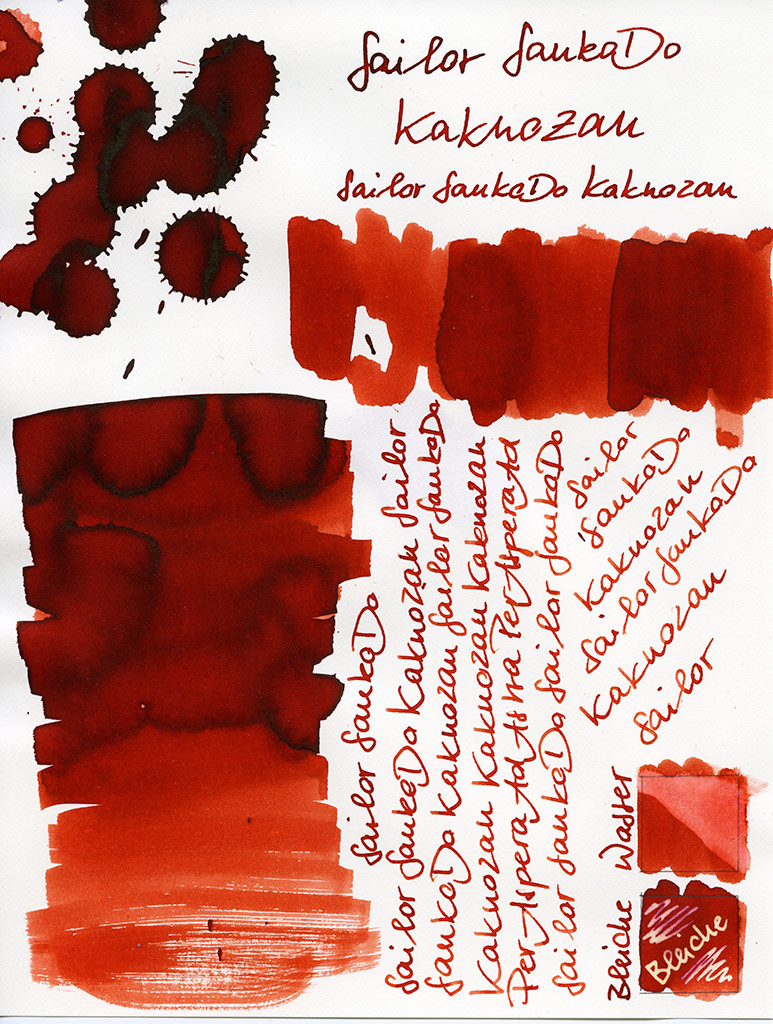 Sailor SankaDo
Kaknozan
Sailor SankaDo Kaknozan
Sailor SankaDo
Sailor SankaDo Kaknozan Sailor
SankaDo Kaknozan Sailor SankaDo
Kaknozan Kaknozan Kaknozan
Per Aspera Ad Astra Per Aspera Ad
Sailor SankaDo Sailor SankaDo
Sailor
SankaDo
Kaknozan
Sailor SankaDo
Kaknozan
Sailor
Wasser
Bleiche
Bleiche